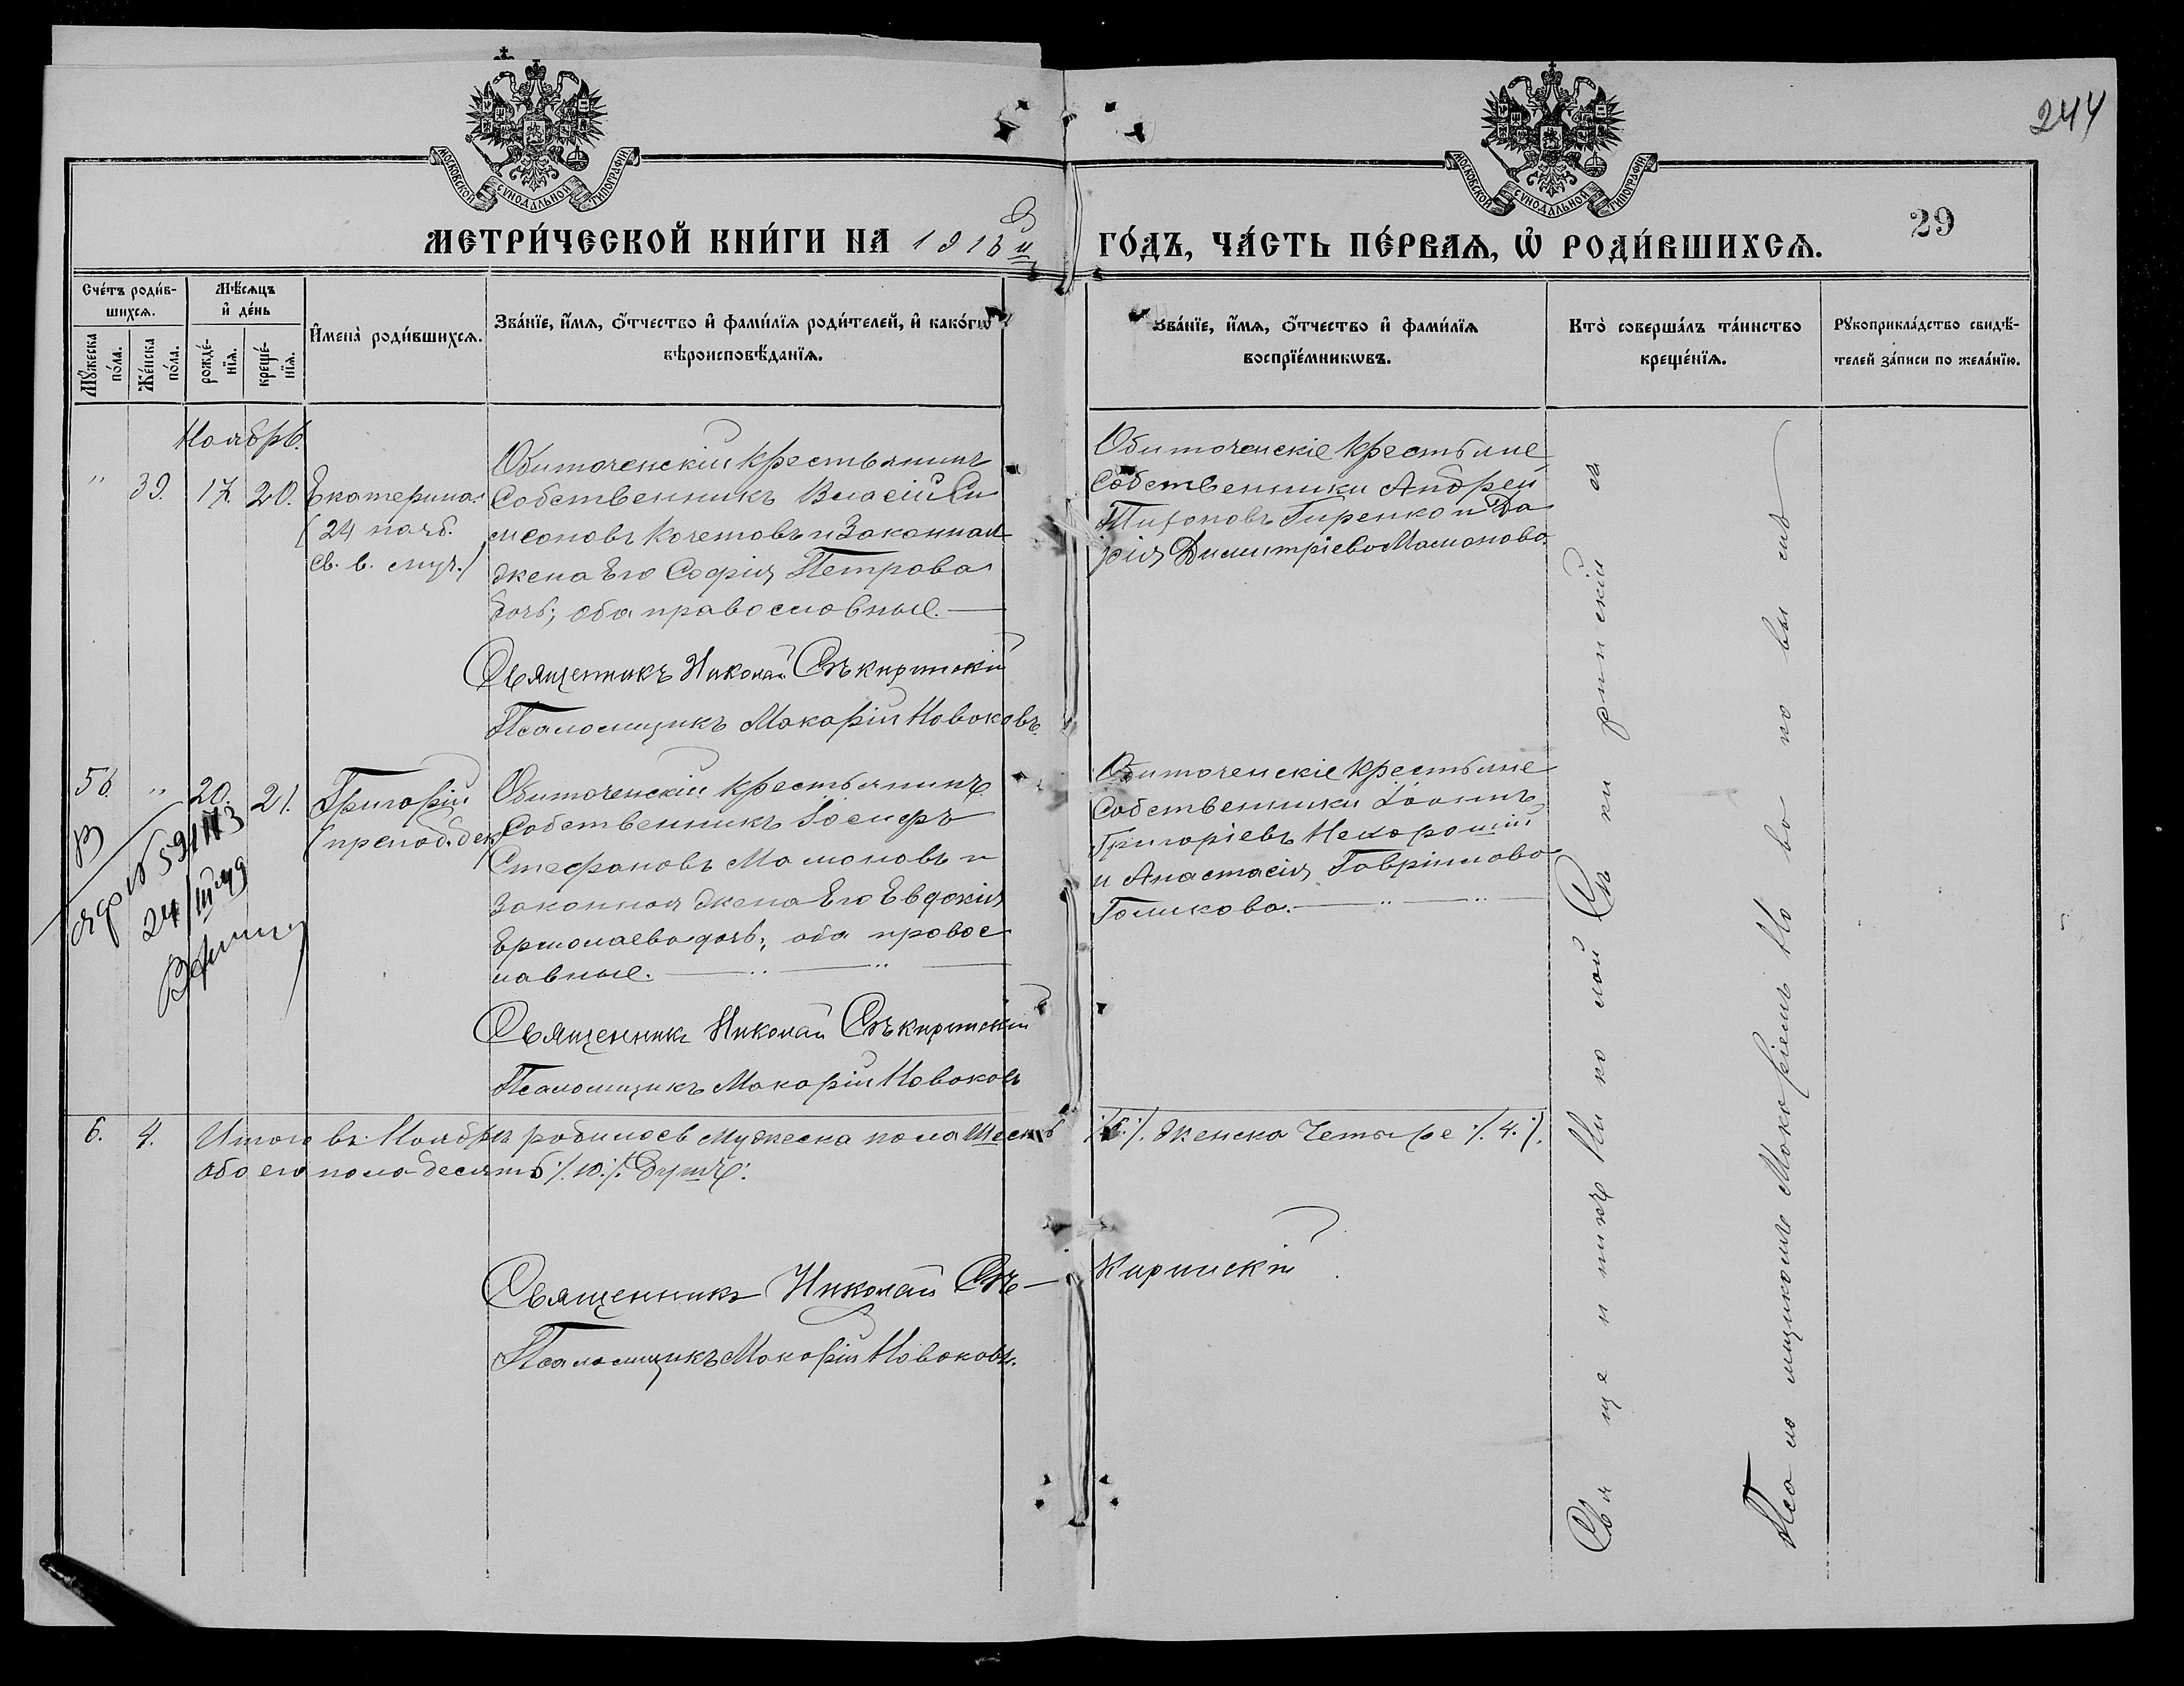 244
МОСКОВСКОЙ СѴНОДАЛЬНОЙ ТИПОГРАФІИ
МОСКОВСКОЙ СѴНОДАЛЬНОЙ ТИПОГРАФІИ
29
МЕТРИ́ЧЕСКОЙ КНИ́ГИ НА 1916 й ГО́ДЪ, ЧА́СТЬ ПЕ́РВАЯ, Ѡ РОДИ́ВШИХСЯ.
Сче́тъ роди́в-
шихся.
Мꙋ́жеска по́ла.
Же́нска по́ла.
Мѣ́сяцъ
и҆ де́нь
рожде́-нїя.
креще́-нїя.
И҆мена̀ роди́вшихся.
Зва́нїе, и҆́мя, ѻ҆́тчество и҆ фами́лїя роди́телей, и҆ како́гѡ
вѣроисповѣ́данїя.
Зва́нїе, и҆́мя, ѻ҆́тчество и҆ фами́лїя
воспрїе́мникѡвъ.
Кто̀ соверша́лъ та́инство
креще́нїя.
Рꙋкоприкла́дство свидѣ́-
телей за́писи по жела́нїю.
Ноябрь.
" 39. 17. 20.
Екатерина
(24 нояб.
св. в. муч.)
Обиточенскій крестьянинъ
Собственникъ Власій Си
меоновъ Кочетовъ и Законная
жена Его Софія Петрова
дочь; оба православные.
Священникъ Николай Сѣкиринскій
Псаломщикъ Макарій Новаковъ.
Обиточенскіе крестьяне
Собственники Андрей
Тихоновъ Гиренко и Да
рія Димитріева Мамонова.
56. " 20. 21.
24/III
Григорій
(препод. дек
Обиточенскій крестьянинъ
Собственникъ Іосифъ
Стефановъ Мамоновъ и
Законная жена Его Евдокія
Ермолаева дочь; оба правос
лавные.
Священникъ Николай Сѣкиринскій
Псаломщикъ Макарій Новаковъ
Обиточенскіе крестьяне
Собственники Іоаннъ
Григоріевъ Нехорошій
и Анастасія Гавріилова
Голикова.
6. 4. Итого въ Ноябрѣ родилось мужеска пола Шесть /:6:/. женска Четыре /:4:/.
обоего пола десять /:10:/. душъ.
Священникъ Николай Сѣ-киринскій
Псаломщикъ Макарій Новаковъ.
Священникъ Николай Сѣкиринскій съ
Псаломщикомъ Макаріемъ Новаковымъ